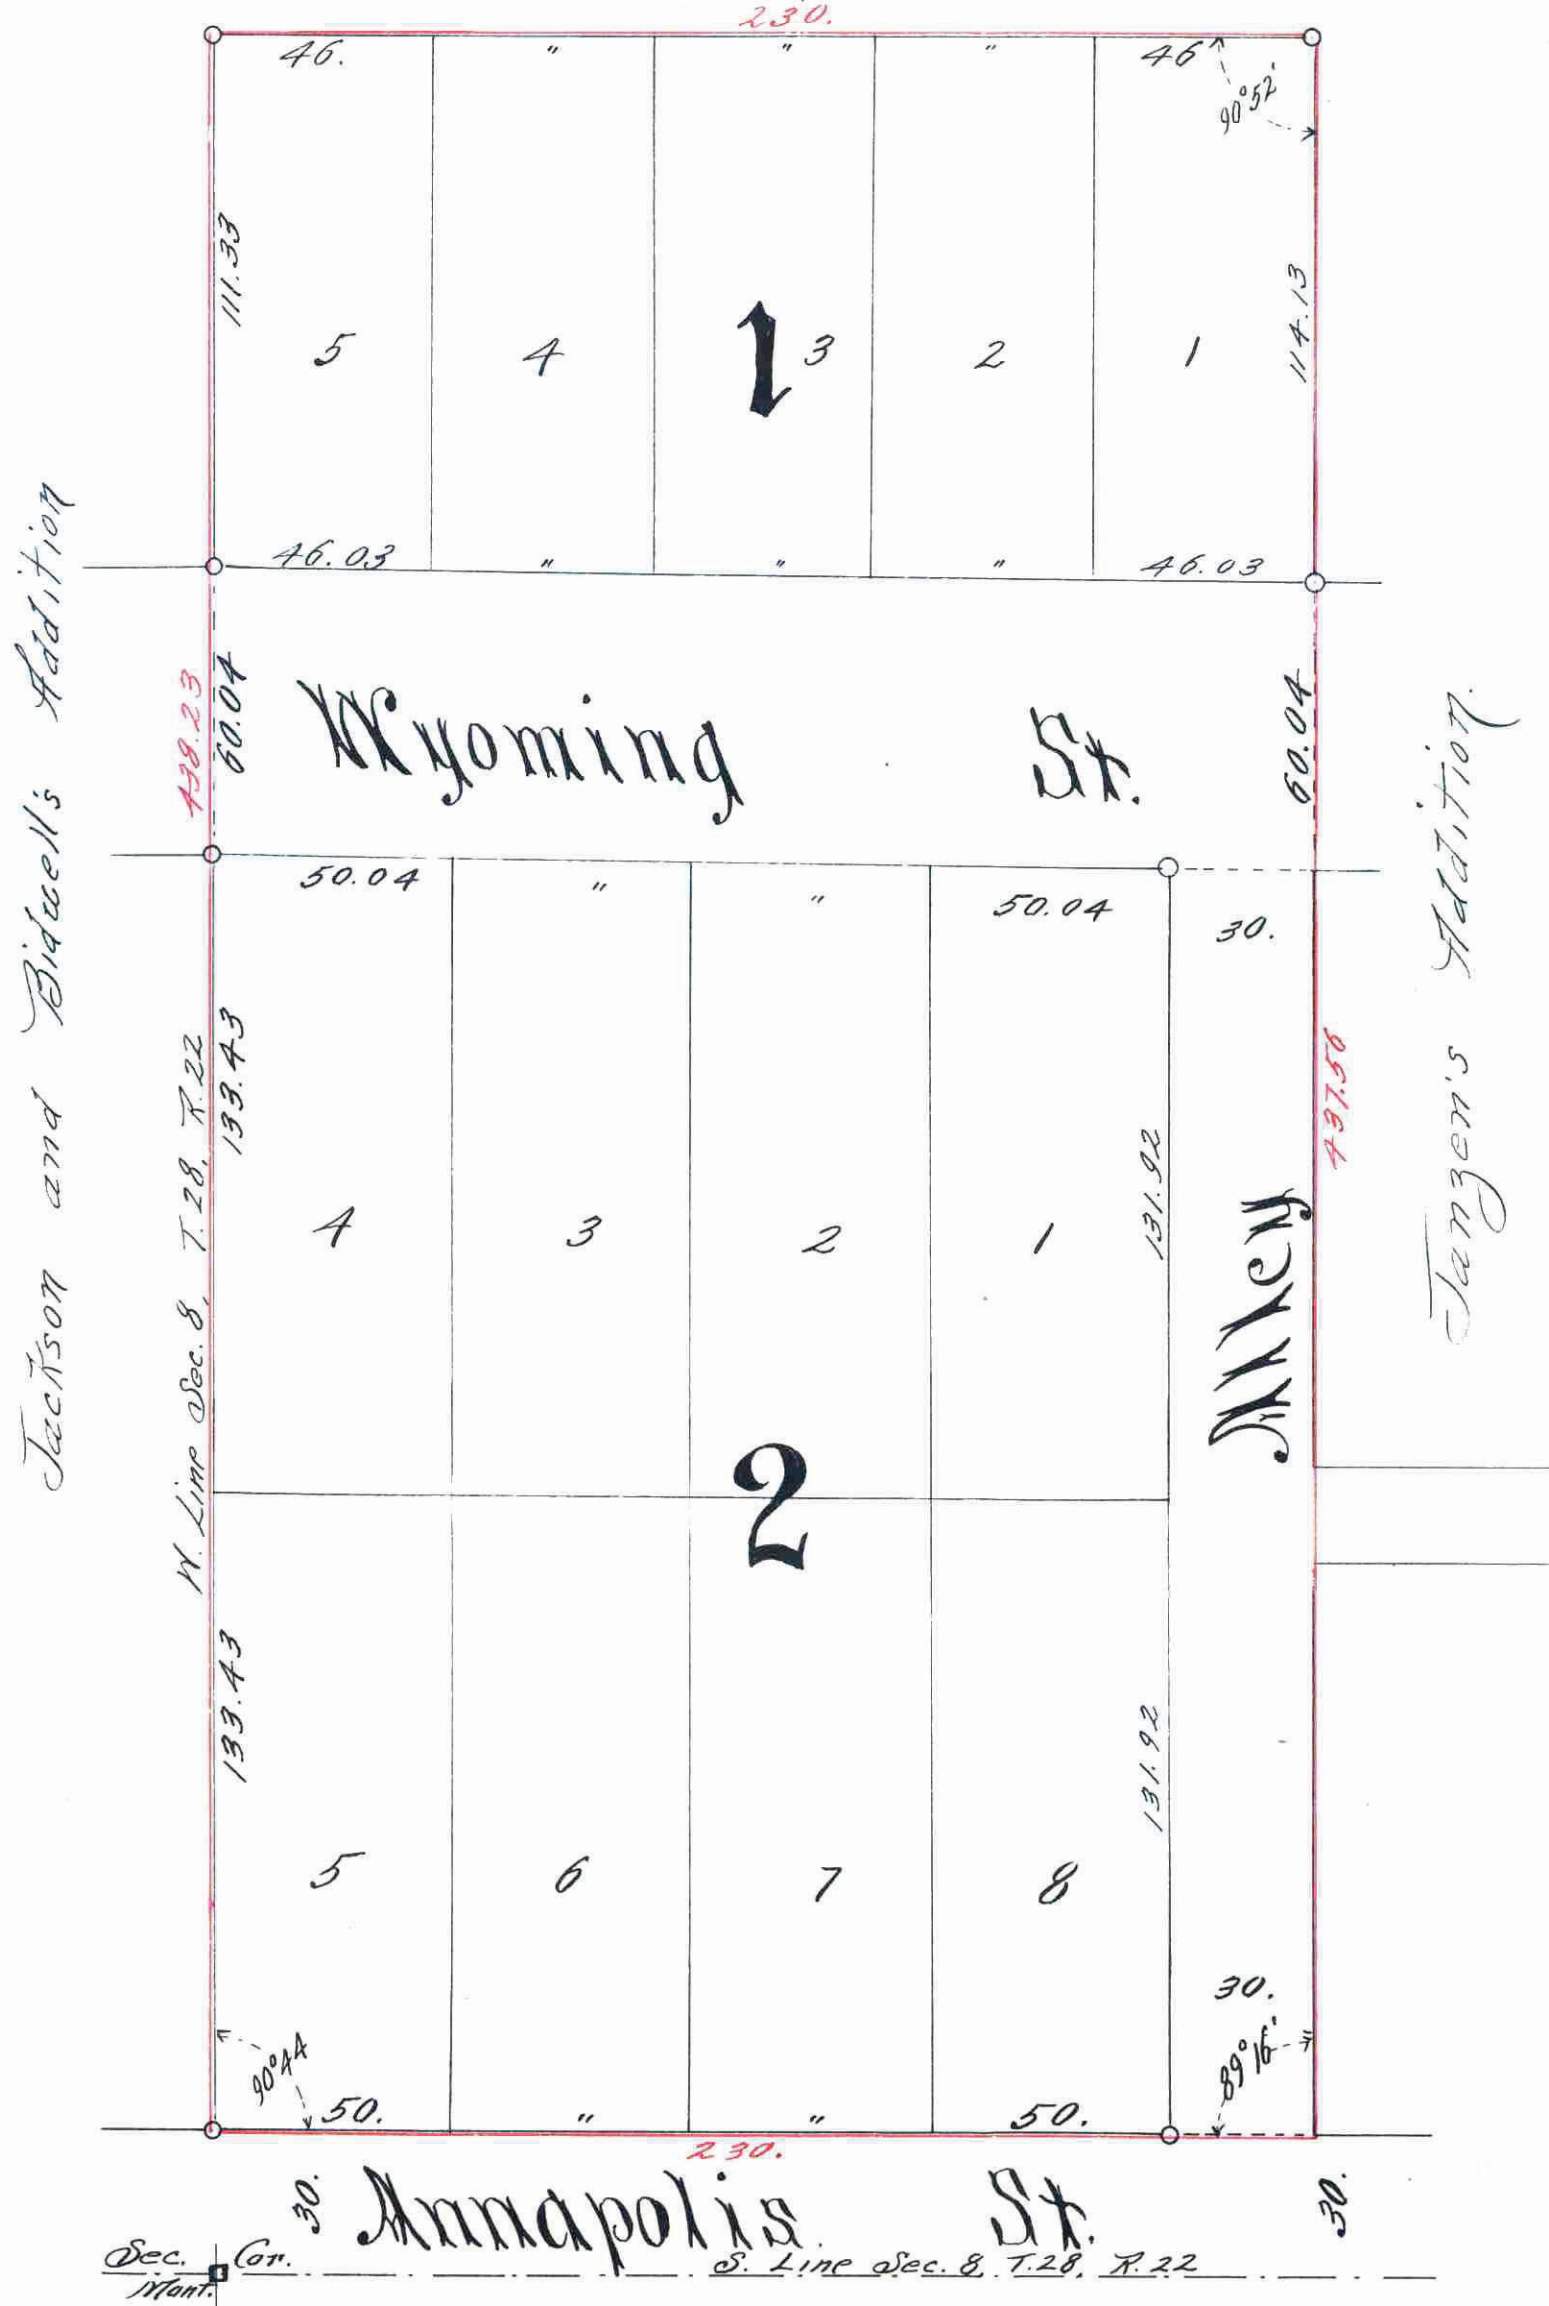 230.
46. " " " 46
90°52'
111.33
114.13
5 4 3 2 1
1
46.03 " " " 46.03
Jackson and Bidwell's Addition
438.23
60.04
Wyoming St.
60.04
Janzen's Addition.
50.04 " " 50.04
30.
W. Line Sec. 8, T. 28, R. 22
133.43
131.92
437.56
4 3 2 1
Alley
2
133.43
131.92
5 6 7 8
30.
90°44
89°16'
50. " " 50.
230.
30.
Annapolis St.
30.
Sec. Cor.
Mont.
S. Line Sec. 8, T. 28, R. 22